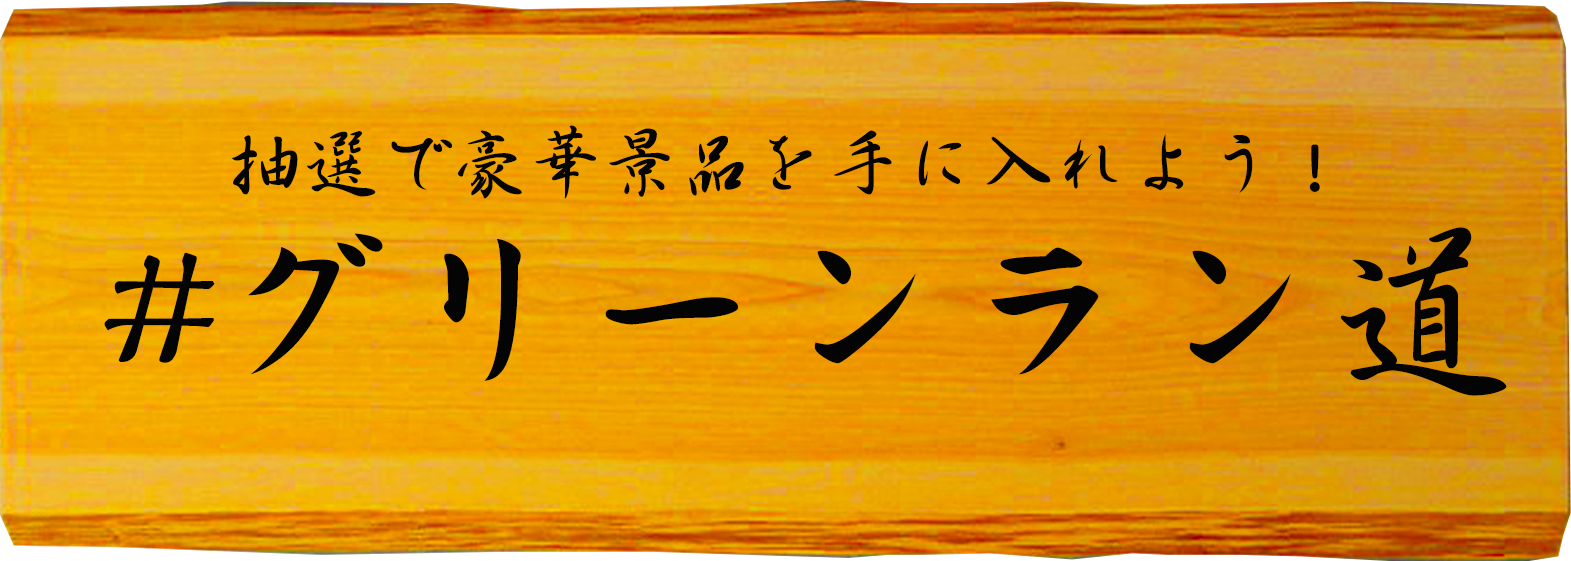 抽選で豪華景品を手に入れよう！
#グリーンラン道